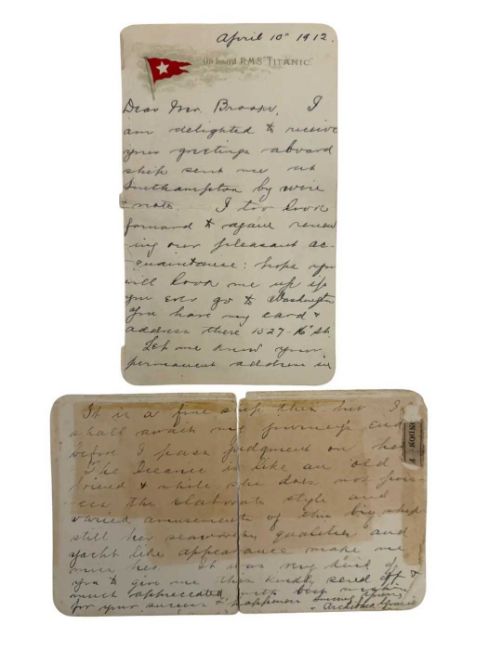 April 10th 1912.
On board R.M.S "TITANIC"
Dear Mr. Brooks, I
am delighted to receive
your greetings aboard
ship sent me at
Southampton by wire
& note. I too look
forward to again renew
ing our pleasant ac
quaintance: hope you
will look me up if
you ever go to Washington
You have my card &
address there 1527-16 St.
Let me know your
permanent address in
It is a fine ship this but I
shall await my journeys end
before I pass judgment on her
The Oceanic is like an old
friend & while she does not poss
ess the elaborate style and
varied amusements of this big ship
still her seaworthy qualities and
yacht like appearance make me
miss her. It was very kind of
you to give me this kindly send off &
much appreciated with best wishes
for your success & happiness Sincerely yours,
Archibald Gracie